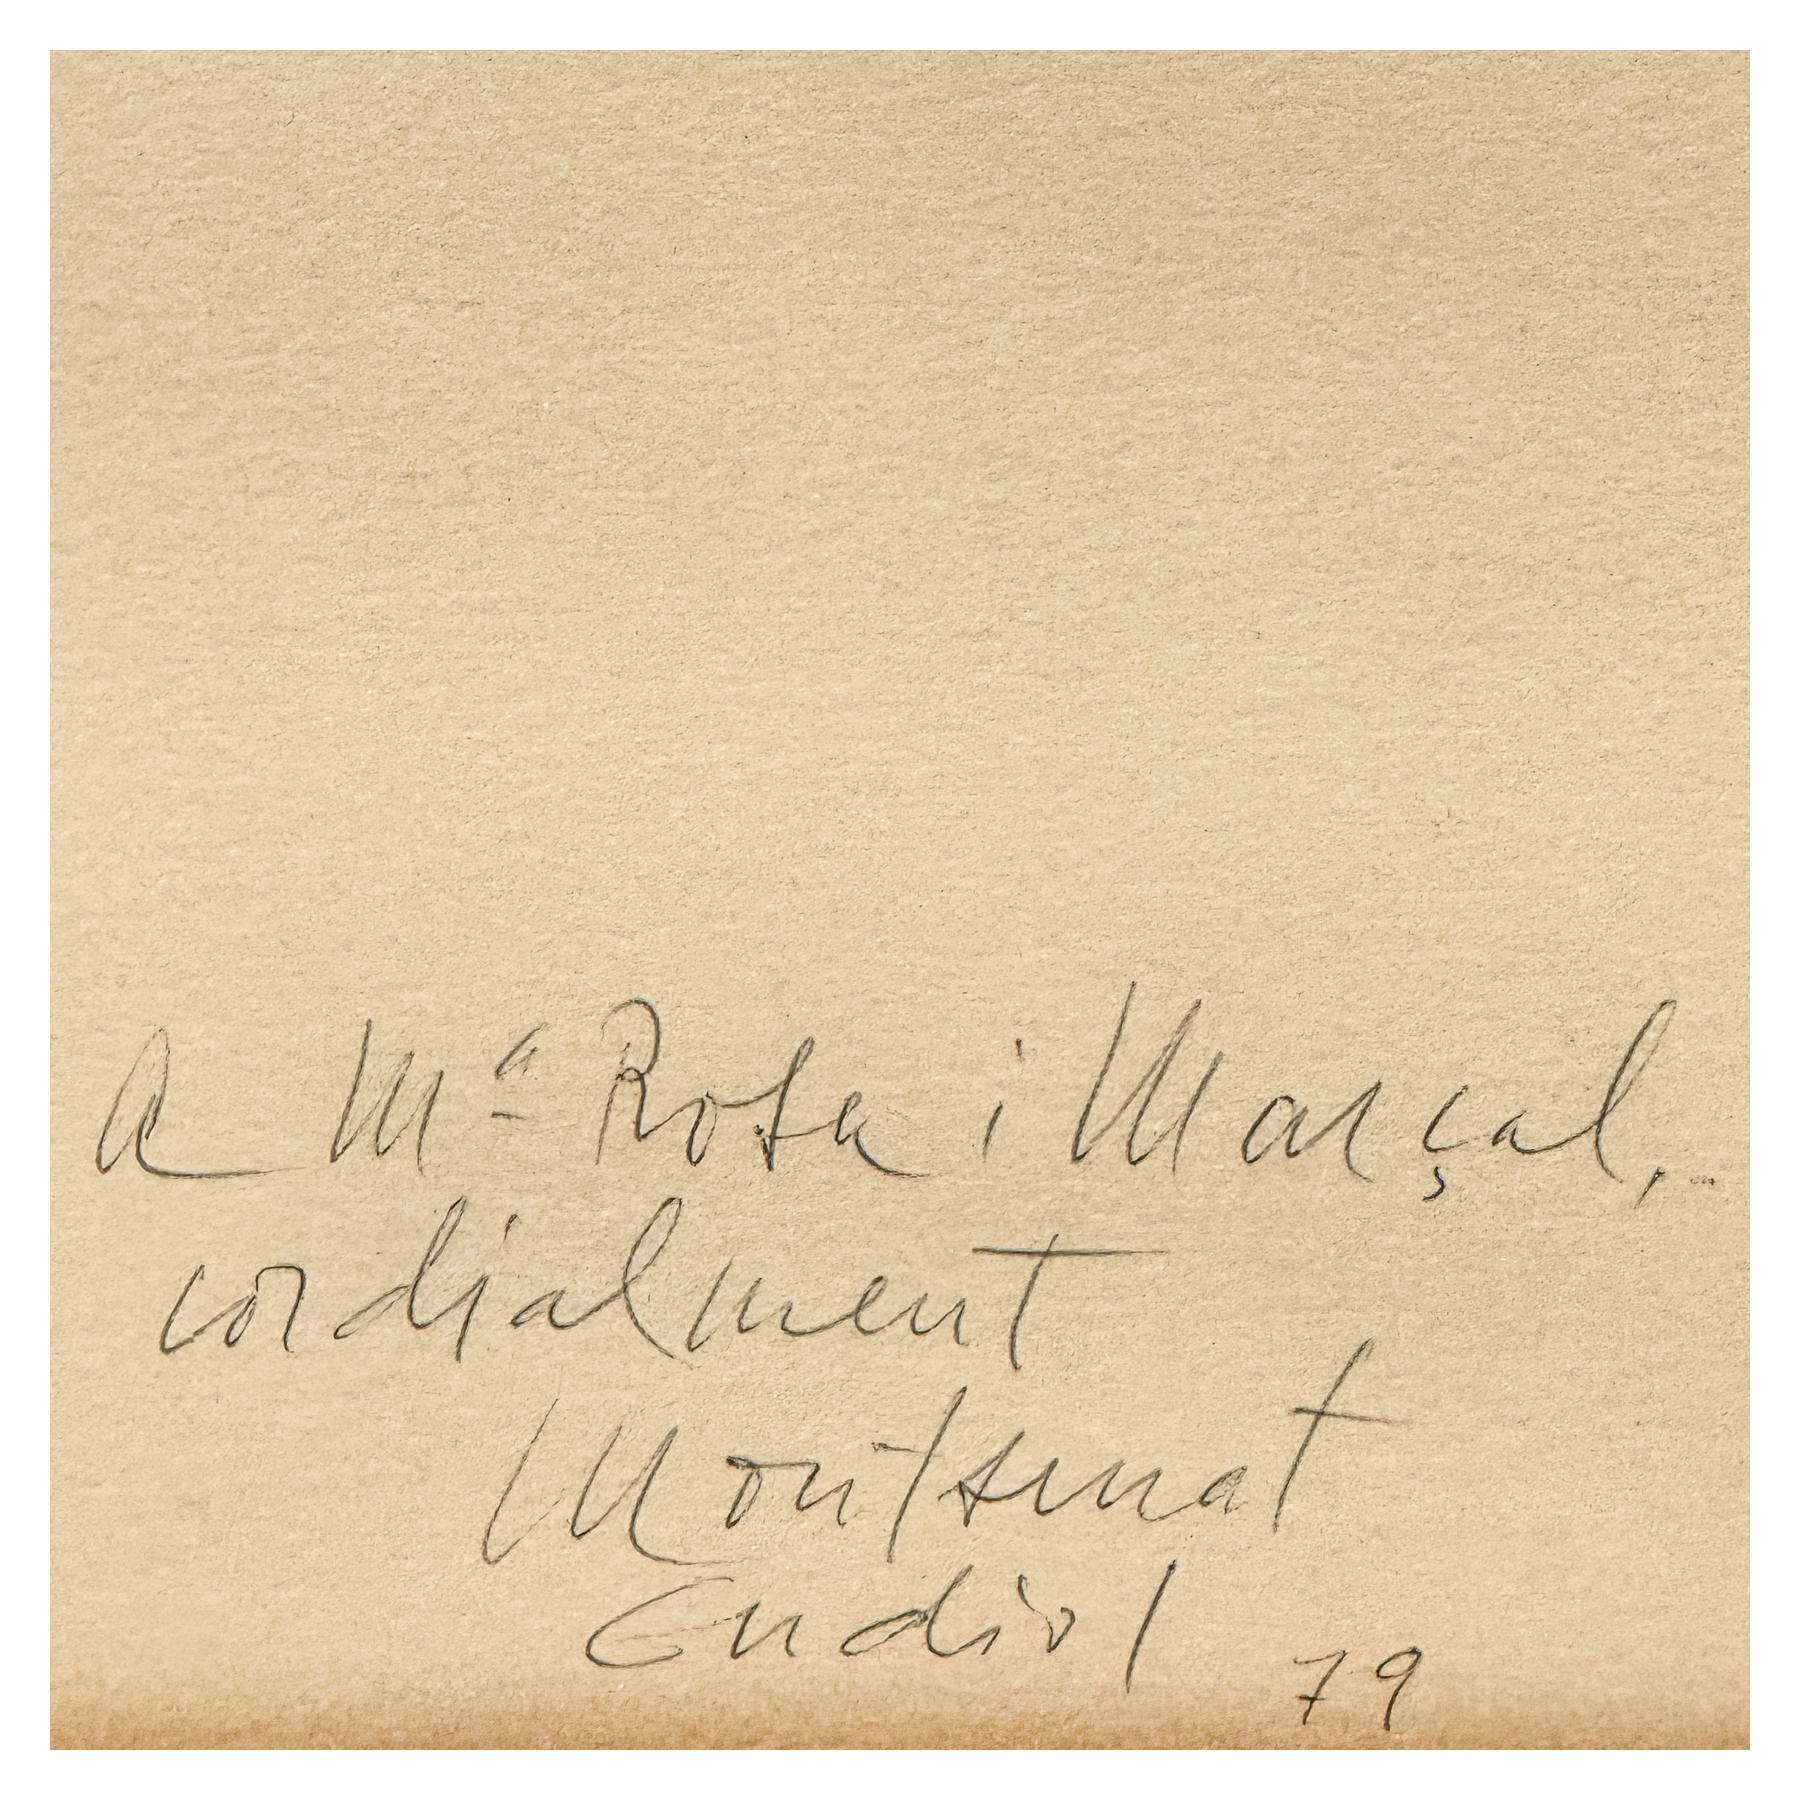 a Mª Rosa i Marçal,
cordialment
Montserrat
Gudiol
79